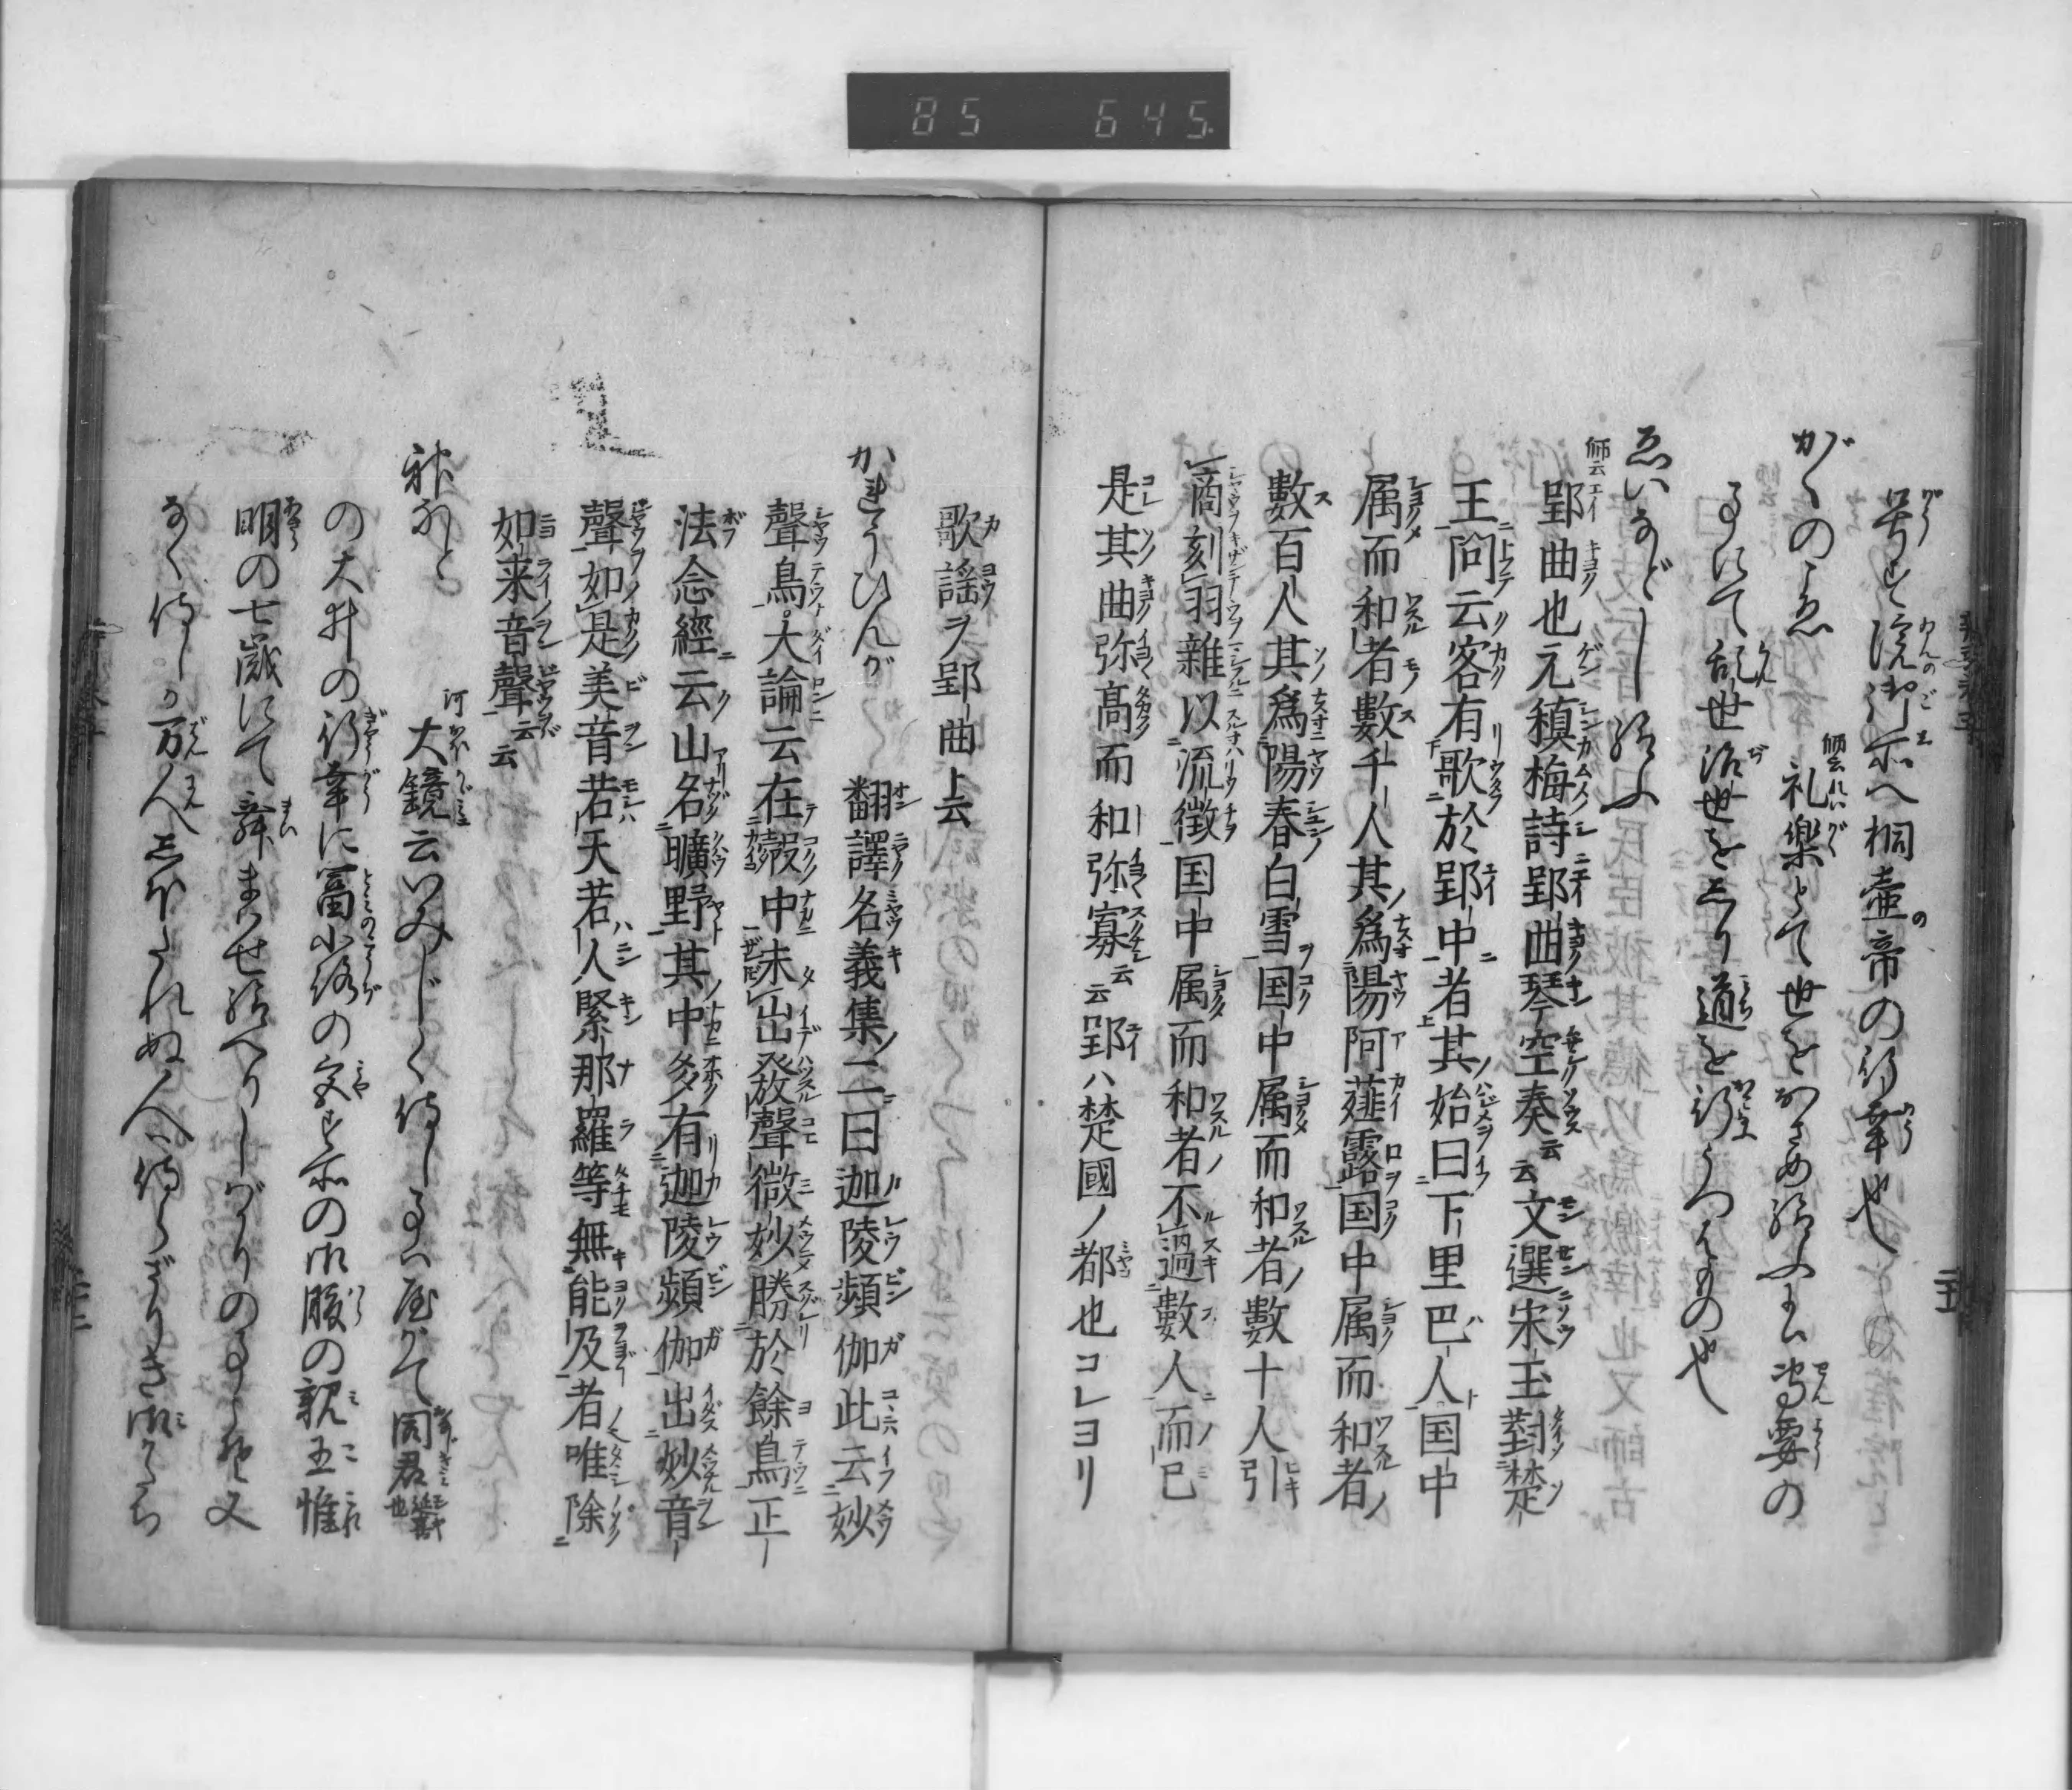 85 645
号を院御所へ桐壺帝の行幸也
がくのゑ 師云礼楽とて世をおさめ給ふには専要の
事にて乱世治世をしり道を行うつはもの也
ゑいなどし給ふ
師云郢曲也元稹梅詩郢曲琴空奏云云文選宋玉對楚
王問云客有歌於郢中者其始曰下里巴人国中
属而和者數千人其為陽阿薤露国中属而和者
數百人其為陽春白雪国中属而和者數十人引
商刻羽雜以流徴国中属而和者不過數人而已
是其曲弥髙而和弥寡云云郢ハ楚國ノ都也コレヨリ
歌謡ヲ郢曲ト云
かれうひんが 翻譯名義集二曰迦陵頻伽此云妙
聲鳥大論云在㲉中未出發聲微妙勝於餘鳥正
法念經云山名曠野其中多有迦陵頻伽出妙音
聲如是美音若天若人緊那羅等無能及者唯除
如来音聲云云
河大鏡云いみじく侍し事は屋がて同君
の大井の行幸に冨小路の御腹の親王惟
明の七歳にて舞まはせ給へりしばかりの事こそ又
なく侍しか万人しほたれぬ人侍らざりき